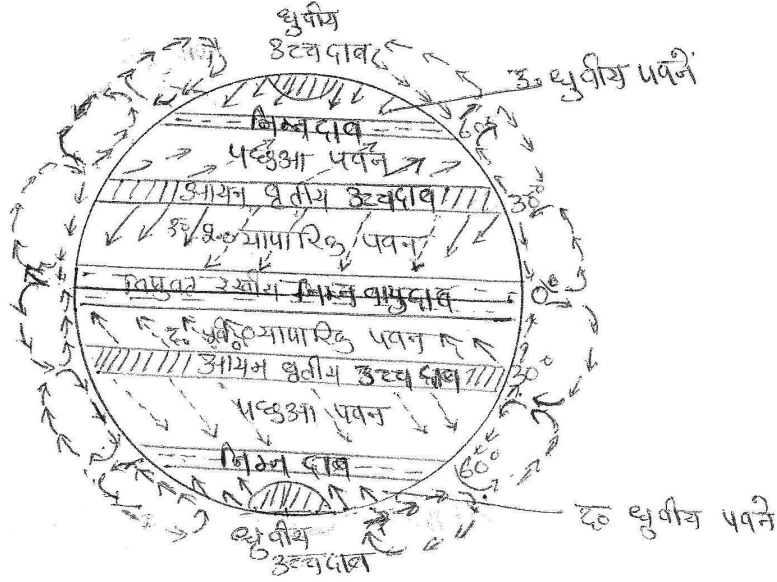 ध्रुवीय
उच्चदाब
उ० ध्रुवीय पवनें
60°
निम्न दाब
पछुआ पवन
आयन वृतीय उच्चदाब
30°
उ० पू० व्यापारिक पवन
विषुवत रेखीय निम्न वायुदाब
0°
द० पूर्वी० व्यापारिक पवन
आयन वृतीय उच्च दाब
30°
पछुआ पवन
निम्न दाब
60°
द० ध्रुवीय पवने
ध्रुवीय
उच्चदाब